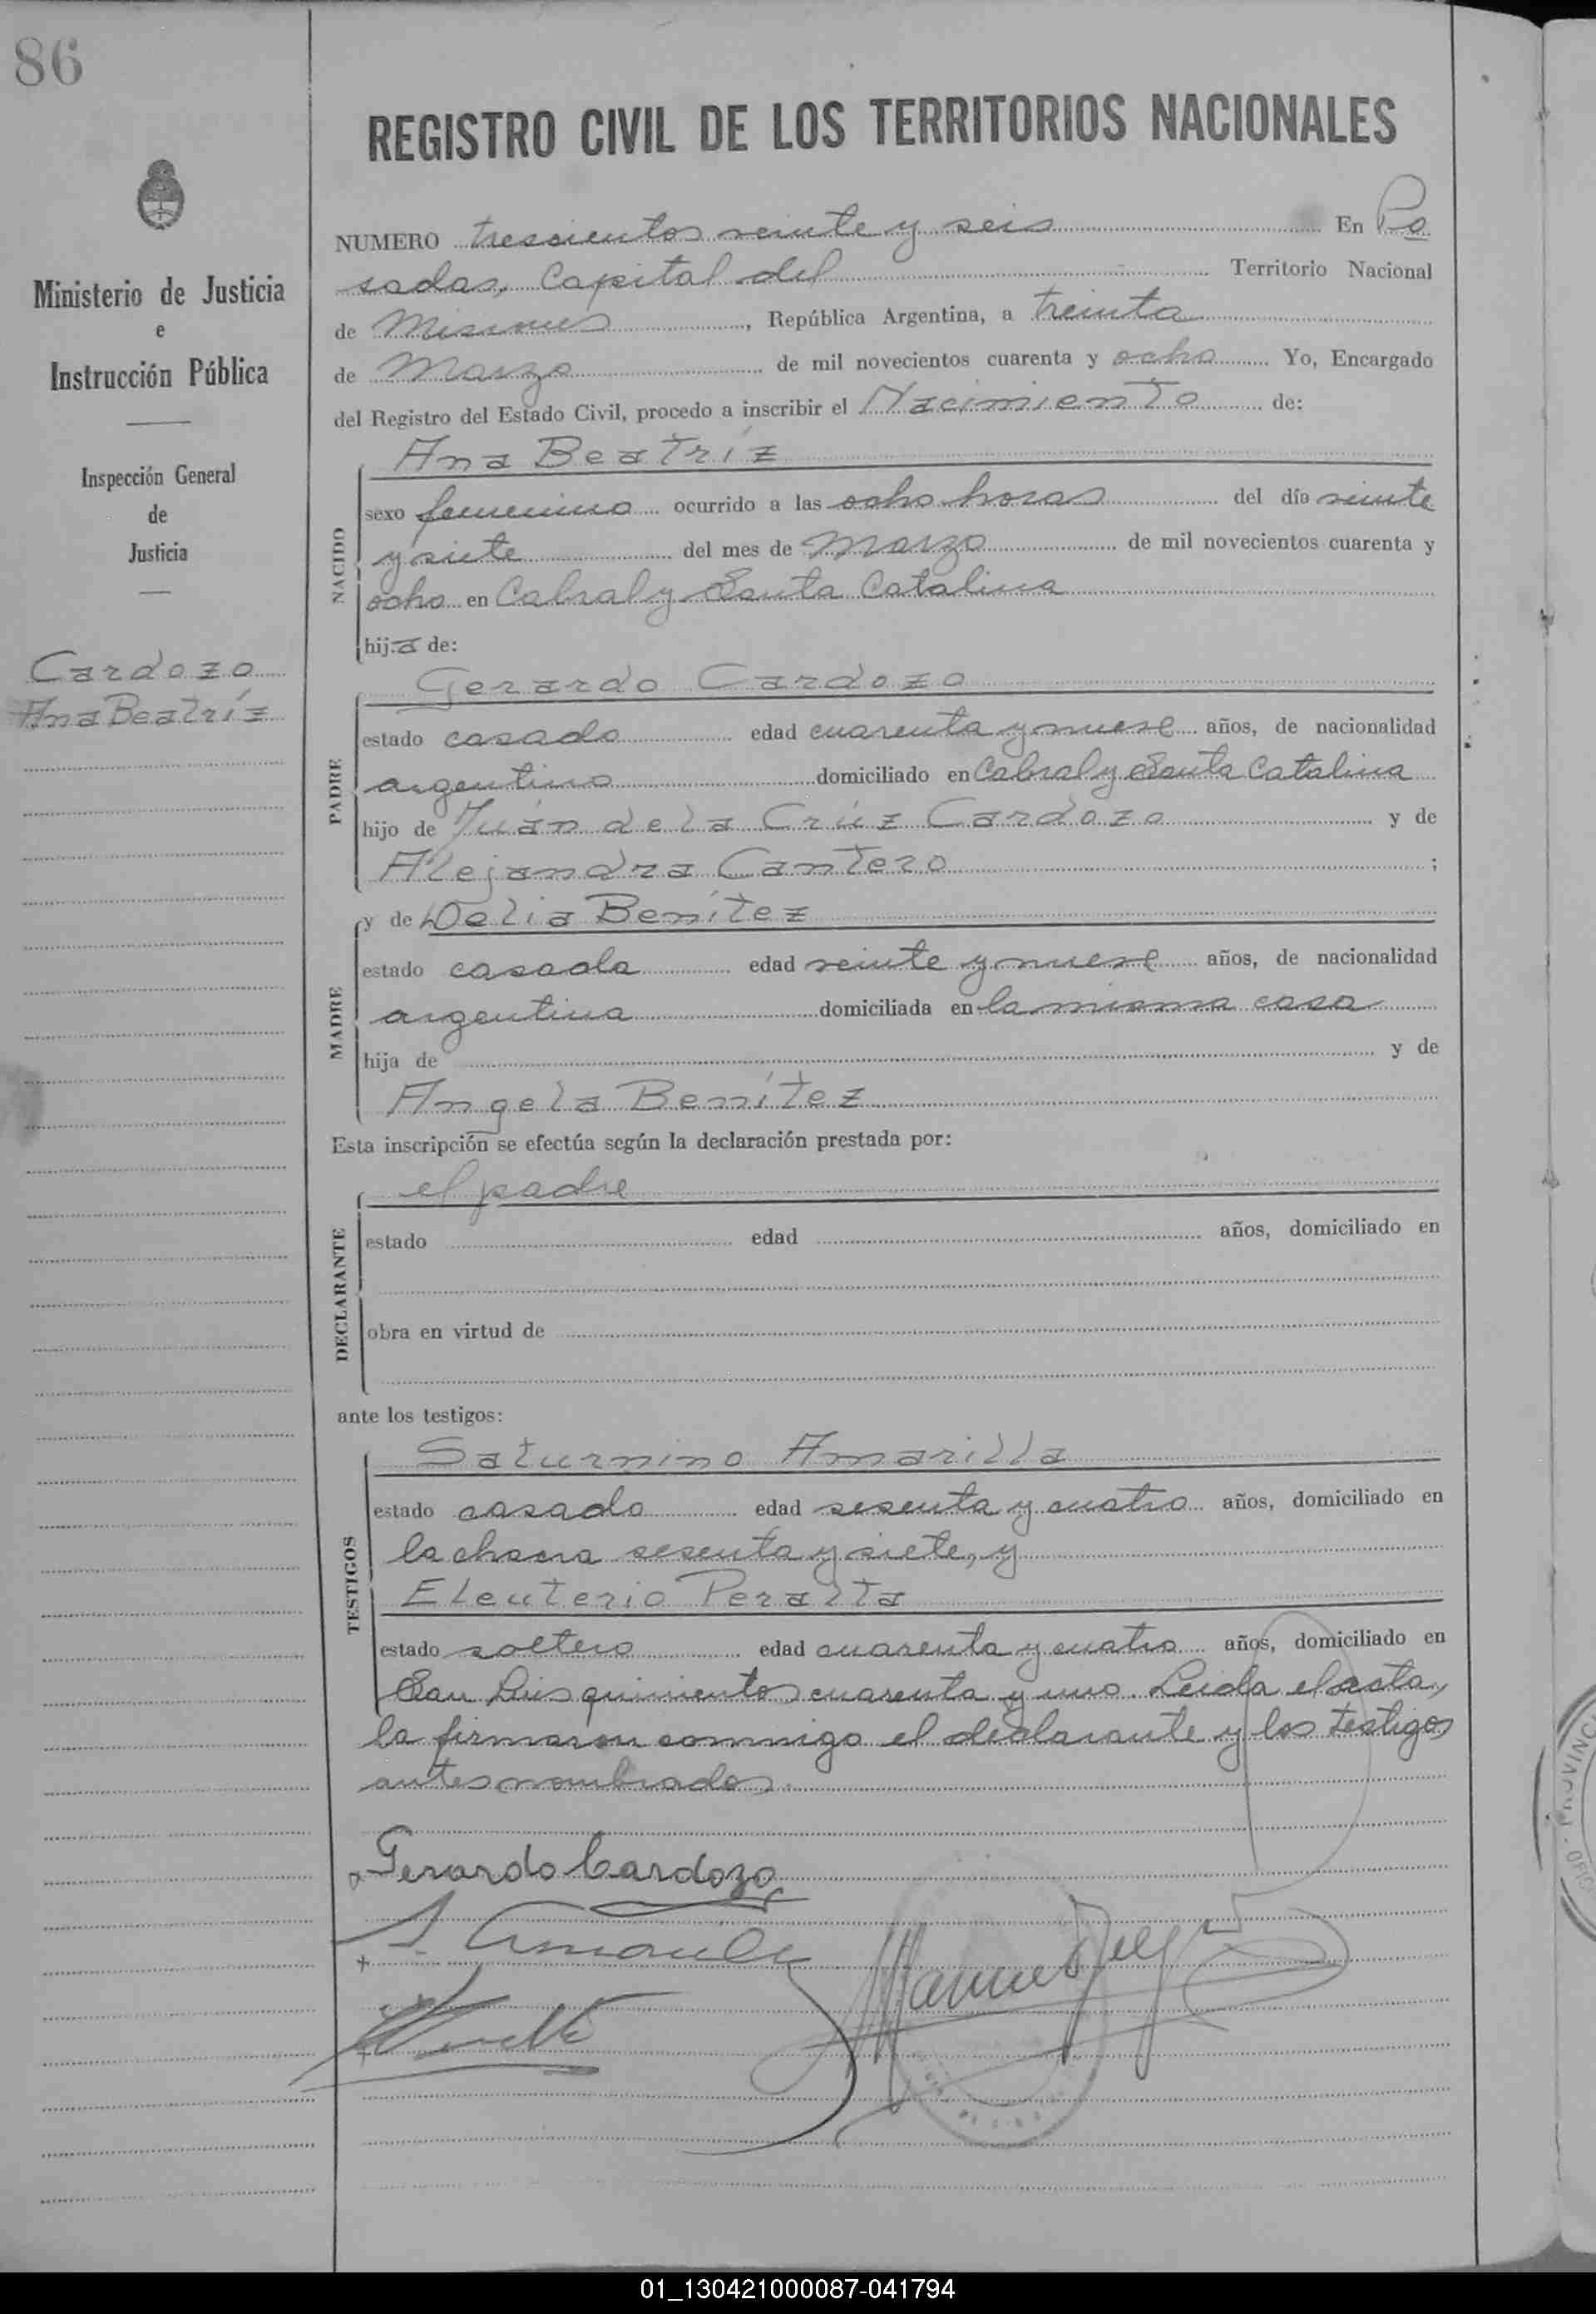 86
REGISTRO CIVIL DE LOS TERRITORIOS NACIONALES
Ministerio de Justicia
e
Instrucción Pública
Inspección General
de
Justicia
Cardozo
Ana Beatríz
NUMERO trescientos veinte y seis En Po
sadas, Capital del Territorio Nacional
de Misiones, República Argentina, a treinta
de Marzo de mil novecientos cuarenta y ocho Yo, Encargado
del Registro del Estado Civil, procedo a inscribir el Nacimiento de:
NACIDO
Ana Beatríz
sexo femenino ocurrido a las ocho horas del día veinte
y siete del mes de Marzo de mil novecientos cuarenta y
ocho en Cabral y Santa Catalina
hija de:
PADRE
Gerardo Cardozo
estado casado edad cuarenta y nueve años, de nacionalidad
argentino domiciliado en Cabral y Santa Catalina
hijo de Juán de la Crúz Cardozo y de
Alejandra Cantero ;
MADRE
y de Delia Benítez
estado casada edad veinte y nueve años, de nacionalidad
argentina domiciliada en la misma casa
hija de y de
Angela Benítez
Esta inscripción se efectúa según la declaración prestada por:
DECLARANTE
el padre
estado edad años, domiciliado en
obra en virtud de
ante los testigos:
TESTIGOS
Saturnino Amarilla
estado casado edad sesenta y cuatro años, domiciliado en
la chacra sesenta y siete, y
Eleuterio Peralta
estado soltero edad cuarenta y cuatro años, domiciliado en
San Luis quinientos cuarenta y uno. Leida el acta,
la firmaron conmigo el declarante y los testigos
antes nombrados.
Gerardo Cardozo
01_130421000087-041794